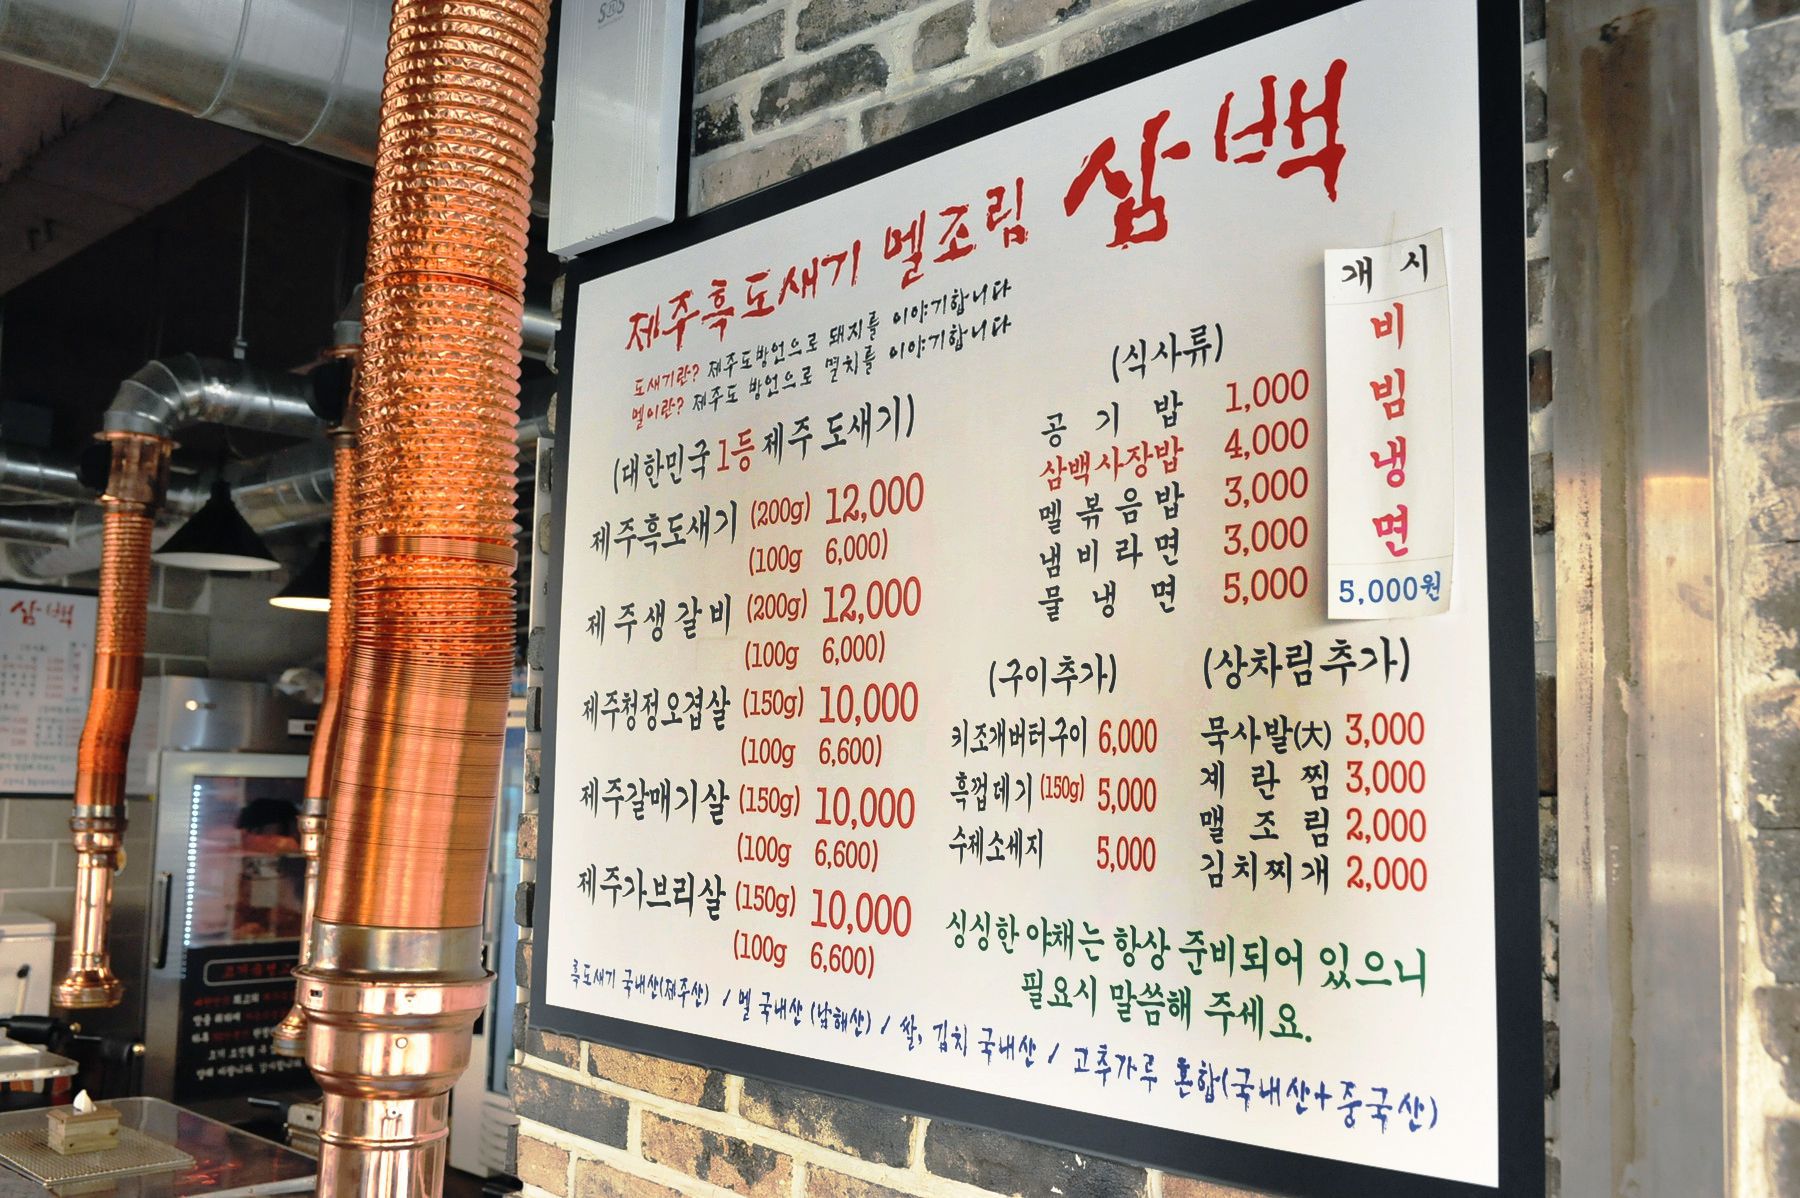 제주흑도새기 멜조림 삼백
도새기란? 제주도방언으로 돼지를 이야기합니다
멜이란? 제주도 방언으로 멸치를 이야기합니다
(대한민국 1등 제주 도새기)
제주흑도새기 (200g) 12,000
(100g 6,000)
제주생갈비 (200g) 12,000
(100g 6,000)
제주청정오겹살 (150g) 10,000
(100g 6,600)
제주갈매기살 (150g) 10,000
(100g 6,600)
제주가브리살 (150g) 10,000
(100g 6,600)
(식사류)
공기밥 1,000
삼백사장밥 4,000
멜볶음밥 3,000
냄비라면 3,000
물냉면 5,000
개시
비
빔
냉
면
5,000원
(구이추가)
키조개버터구이 6,000
흑껍데기 (150g) 5,000
수제소세지 5,000
(상차림추가)
묵사발(大) 3,000
계란찜 3,000
멜조림 2,000
김치찌개 2,000
싱싱한 야채는 항상 준비되어 있으니
필요시 말씀해 주세요.
흑도새기 국내산(제주산) / 멜 국내산 (남해산) / 쌀, 김치 국내산 / 고추가루 혼합(국내산+중국산)
삼백